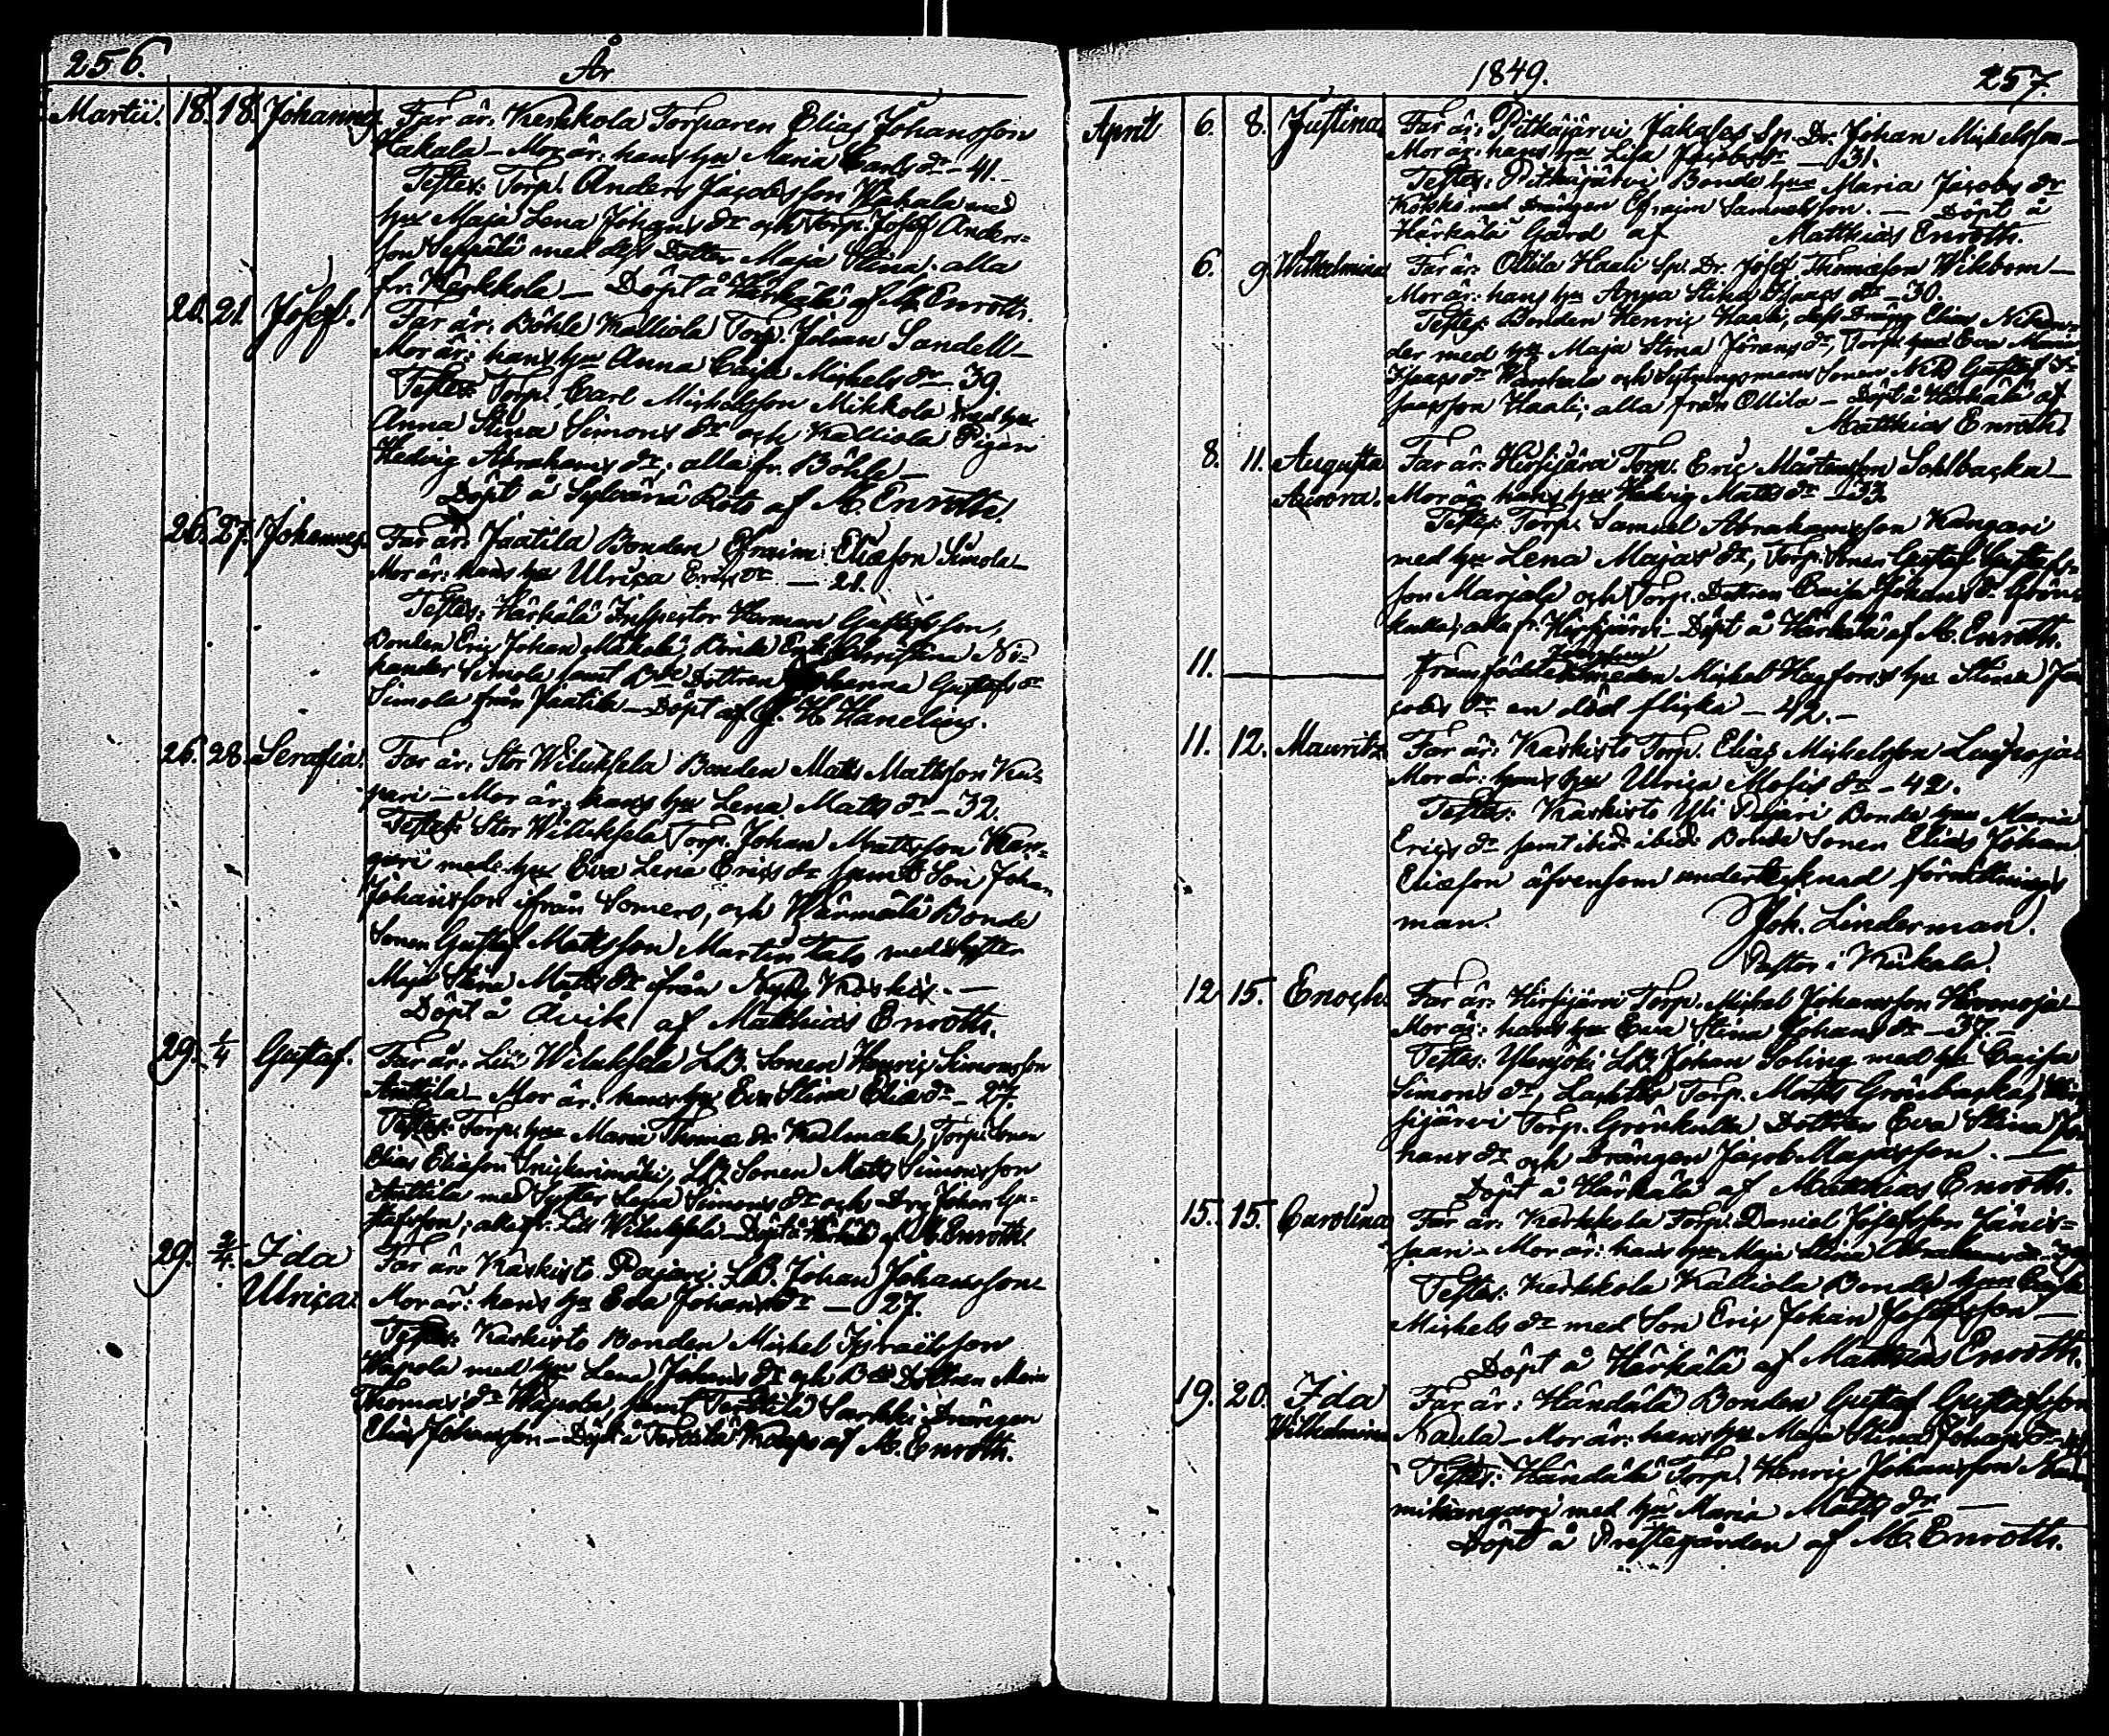 256. År
Martii. 18. 18. Johannes. Far är: Kerkkola Torparen Elias Johansson
Hakala – Mor är: hans hu Maria Carls dr – 41. –
Testes: Torp. Anders Jacobsson Hakala med
hu Maja Lena Johans dr och Torp. Josef Anders=
son Seppälä med dess Dotter Maja Stina; alla
fr. Kerkkola – Döpt å Härkälä af M. Enroth.
20. 21. Josef. Far är: Böhle Kalliola Torp. Johan Sandell –
Mor är: hans hu Anna Caisa Michels dr – 39.
Testes: Torp. Carl Michelsson Mikkola med hu
Anna Stina Simons dr och Kalliola Pigan
Hedvig Abrahams dr; alla fr. Böhle –
Döpt å Sylvänä Rote af M. Enroth.
26. 27. Johannes. Far är: Jaatila Bonden Efraim Eliæson Simola –
Mor är: hans hu Ulrica Erics dr – 21.
Testes: Härkälä Inspector Herman Gustafsson,
Bonden Eric Johan Mäkelä, Bonde Christina Ni=
kander Simola samt Bde Dottren Johanna Gustafs dr
Simola från Jaatila – Döpt af J. H. Hanelius.
26. 28. Serafia. Far är: Stor Wiluksela Bonden Matts Mattsson Ku=
pari – Mor är: hans hu Lena Matts dr – 32.
Testes: Stor Wiluksela Torp. Johan Mattsson Kan=
gari med hu Eva Lena Erics dr samt Son Johan
Johansson ifrån Somero, och Härmälä Bonde
Sonen Gustaf Mattsson Martin Talo med Syster
Maja Stina Matts dr ifrån Kiskis. –
Döpt å Avik af Matthias Enroth.
29. 1/4 Gustaf. Far är: Lill Wiluksela LB. Sonen Henric Simonsson
Anttila – Mor är: hans hu Eva Stina Eliæ dr – 27.
Testes: Torp. hu Maria Thomæ dr Kulmala, Torp. Sonen
Elias Eliæson Snickarimäki, LB. Sonen Matts Simonsson
Anttila med Syster Lena Simons dr och Drg Johan Gu=
stafsson; alla fr. Lill Wiluksela – Döpt å Härkälä af M. Enroth.
29. 2/4. Ida Far är: Kaskisto Pajari LB. Johan Johansson –
Ulrica. Mor är: hans hu Eva Johans dr – 27.
Testes: Kaskisto Bonden Michel Israelsson
Wäpola med hu Lena Johans dr och Bde Dottren Maria
Thomas dr Wäpola, samt Terttilä Sarkki Drängen
Elias Johansson – Döpt å Terttilä Knaapi af M. Enroth.
1849. 257.
April 6. 8. Justina. Far är: Pitkäjärvi Jakases Sp. Dr. Johan Michelsson –
Mor är: hans hu Lisa Jacobs dr – 31.
Testes: Pitkäjärvi Bonde hu Maria Jacobs dr
Kokki med Drängen Efraim Samuelsson. – Döpt å
Härkälä Gård af Matthias Enroth.
6. 9. Wilhelmina Far är: Ollila Haali Sp. Dr. Josef Thomæson Wikbom –
Mor är: hans hu Anna Stina Isaacs dr – 30.
Testes: Bonden Henric Haali, dess Dräng Elias Nikan=
der med hu Maja Stina Jörans dr, Torp. hu Eva Maria
Isaacs dr Wanhala och Sytningsmans Sonen Gustaf
Isaacsson Haali; alla från Ollila – Döpt å Härkälä af
Matthias Enroth.
8. 11. Augusta Far är: Hirsijärvi Torp. Eric Mårtensson Sohlbacka –
Aurora. Mor är: hans hu Hedvig Matts dr – 33.
Testes: Torp. Samuel Abrahamsson Kangari
med hu Lena Majas dr, Torp. Sonen Gustaf Gustafs=
son Marjala och Torp. Dottren Caisa Johans dr Grön=
kulla; alla fr. Hirsijärvi – Döpt å Härkälä af M. Enroth.
11. framfödde Michel Hagfors's hu Stina Ja=
cobs dr en död flicka – 42. –
11. 12. Mauritz. Far är: Kaskisto Torp. Elias Michelsson Lauteoja
Mor är: hans hu Ulrica Mosis dr – 42.
Testes: Kaskisto Yli Pajari Bonde hu Maria
Erics dr samt ibid. ibid. Bonde Sonen Elias Johan
Eliæson äfvensom undertecknad förrättnings
man. Joh. Linderman.
Pastor i Kiikala.
12. 15. Enoch. Far är: Hirsijärvi Torp. Michel Johansson –
Mor är: hans hu Eva Stina Johans dr – 37. –
Testes: Ylenjoki LB. Johan Soling med hu Caisa
Simons dr, Torp. Matts Grönbacka, Hir=
sijärvi Torp. Grönkulla Dottren Eva Stina Jo=
hans dr och Drängen Jacob Majasson. –
Döpt å Härkälä af Matthias Enroth.
15. 15. Carolina Far är: Kerkkola Torp. Daniel Josefsson Jänis=
saari – Mor är: hans hu Maja Stina Abrahams dr
Testes: Kerkkola Kalliola Bonde hu Caisa
Michels dr med Son Eric Johan Josefsson –
Döpt å Härkälä af Matthias Enroth.
19. 20. Ida Far är: Händälä Bonden Gustaf Gustafsson
Wilhelmina Naula – Mor är: hans hu Maja Stina Johans dr
Testes: Händälä Torp. Henric Johansson
med hu Maria Matts dr –
Döpt å Prestegården af M. Enroth.